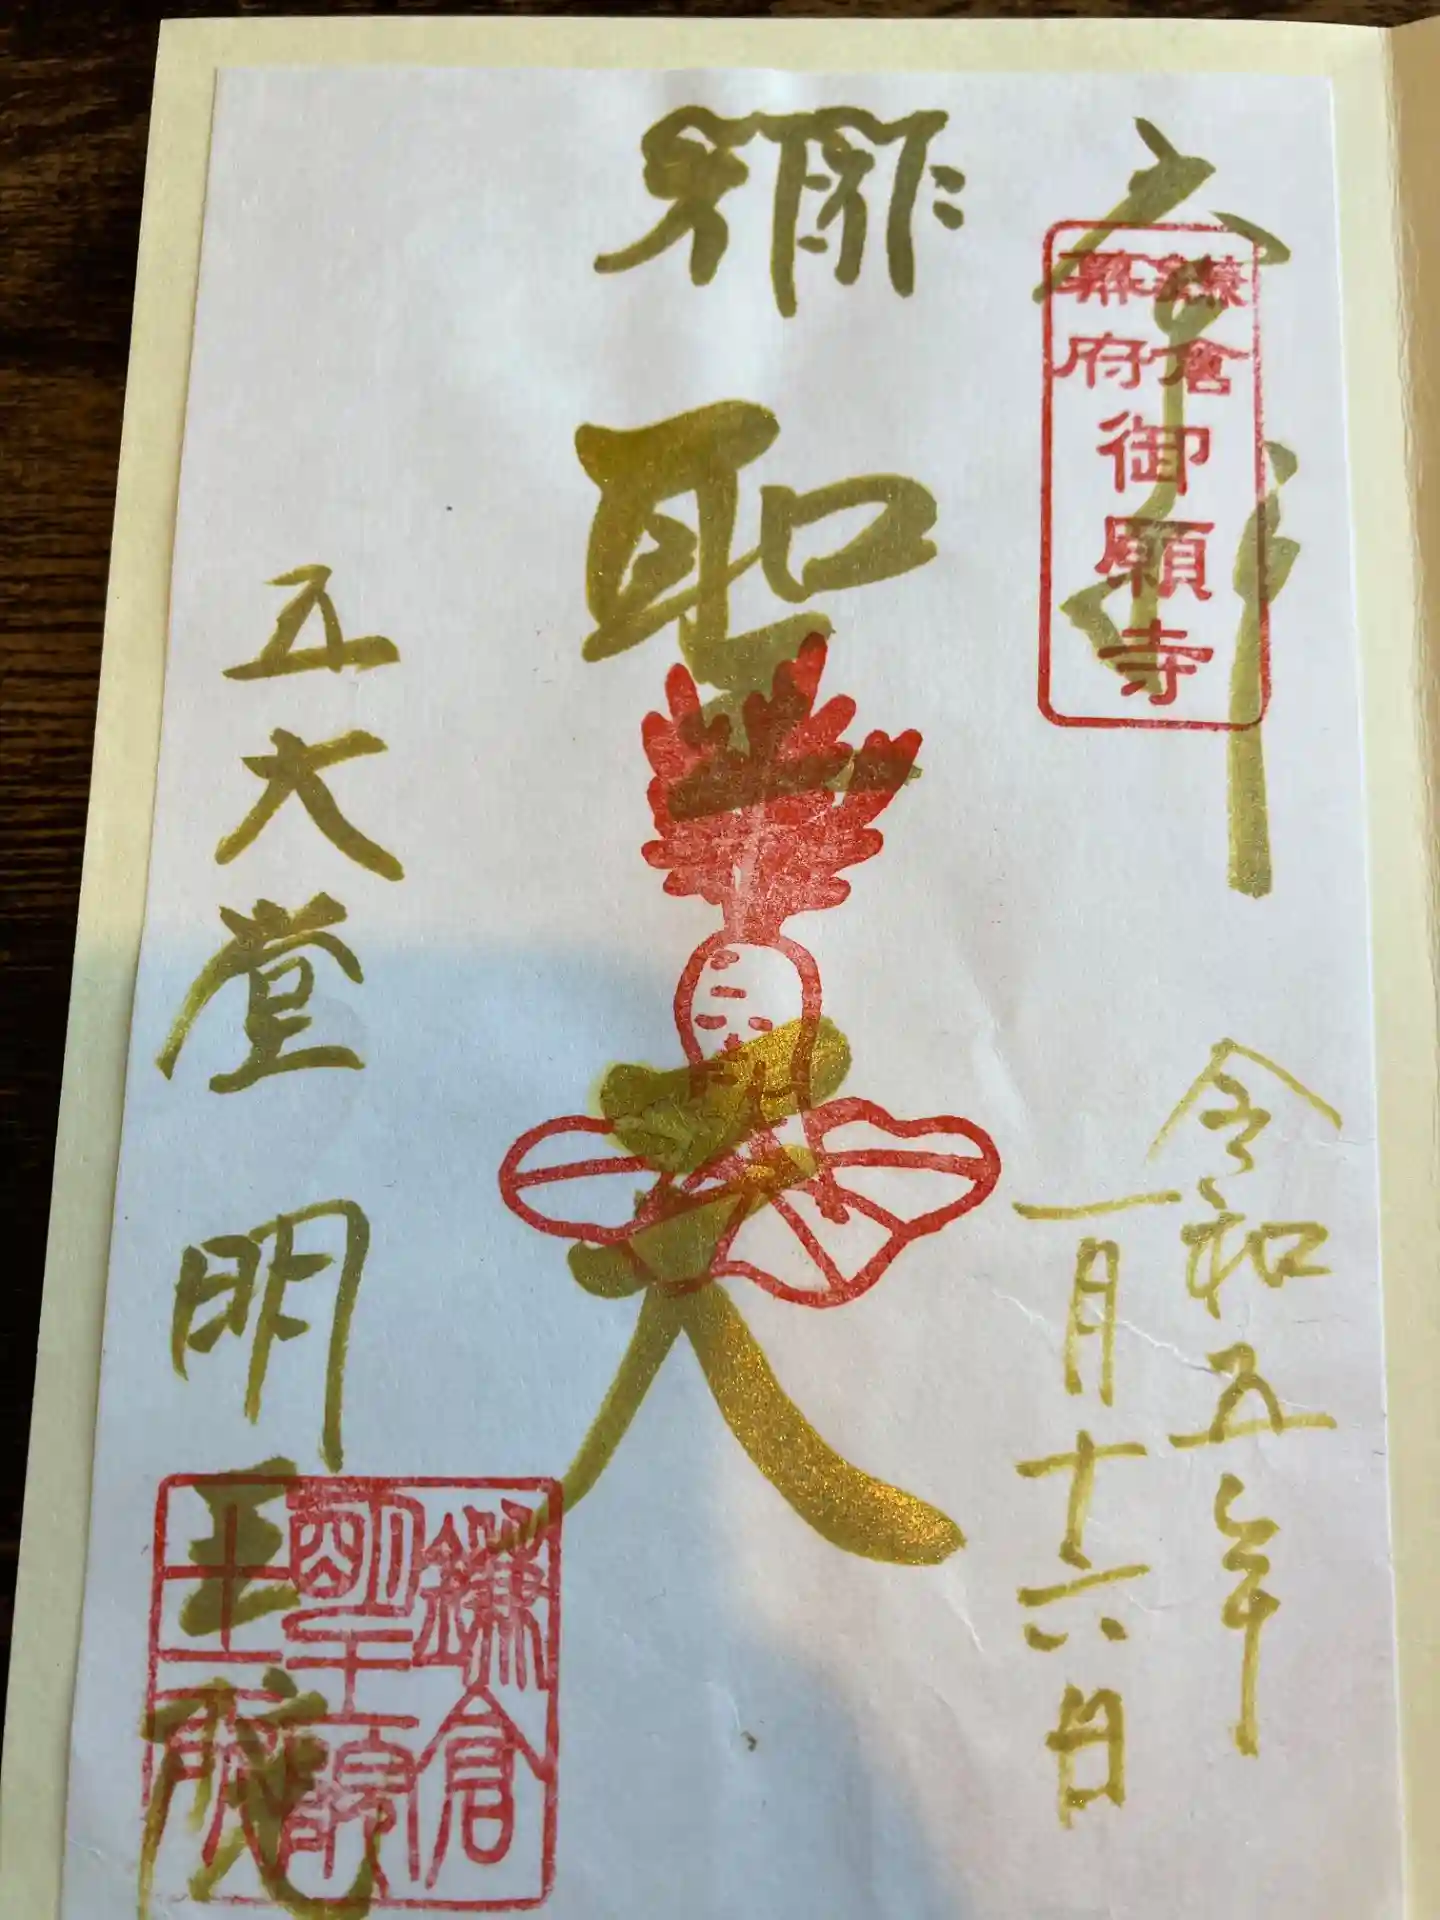 奉拝
鎌倉
幕府
御願寺
令和五年
一月十六日
聖天
五大堂
明王院
鎌倉
明王院